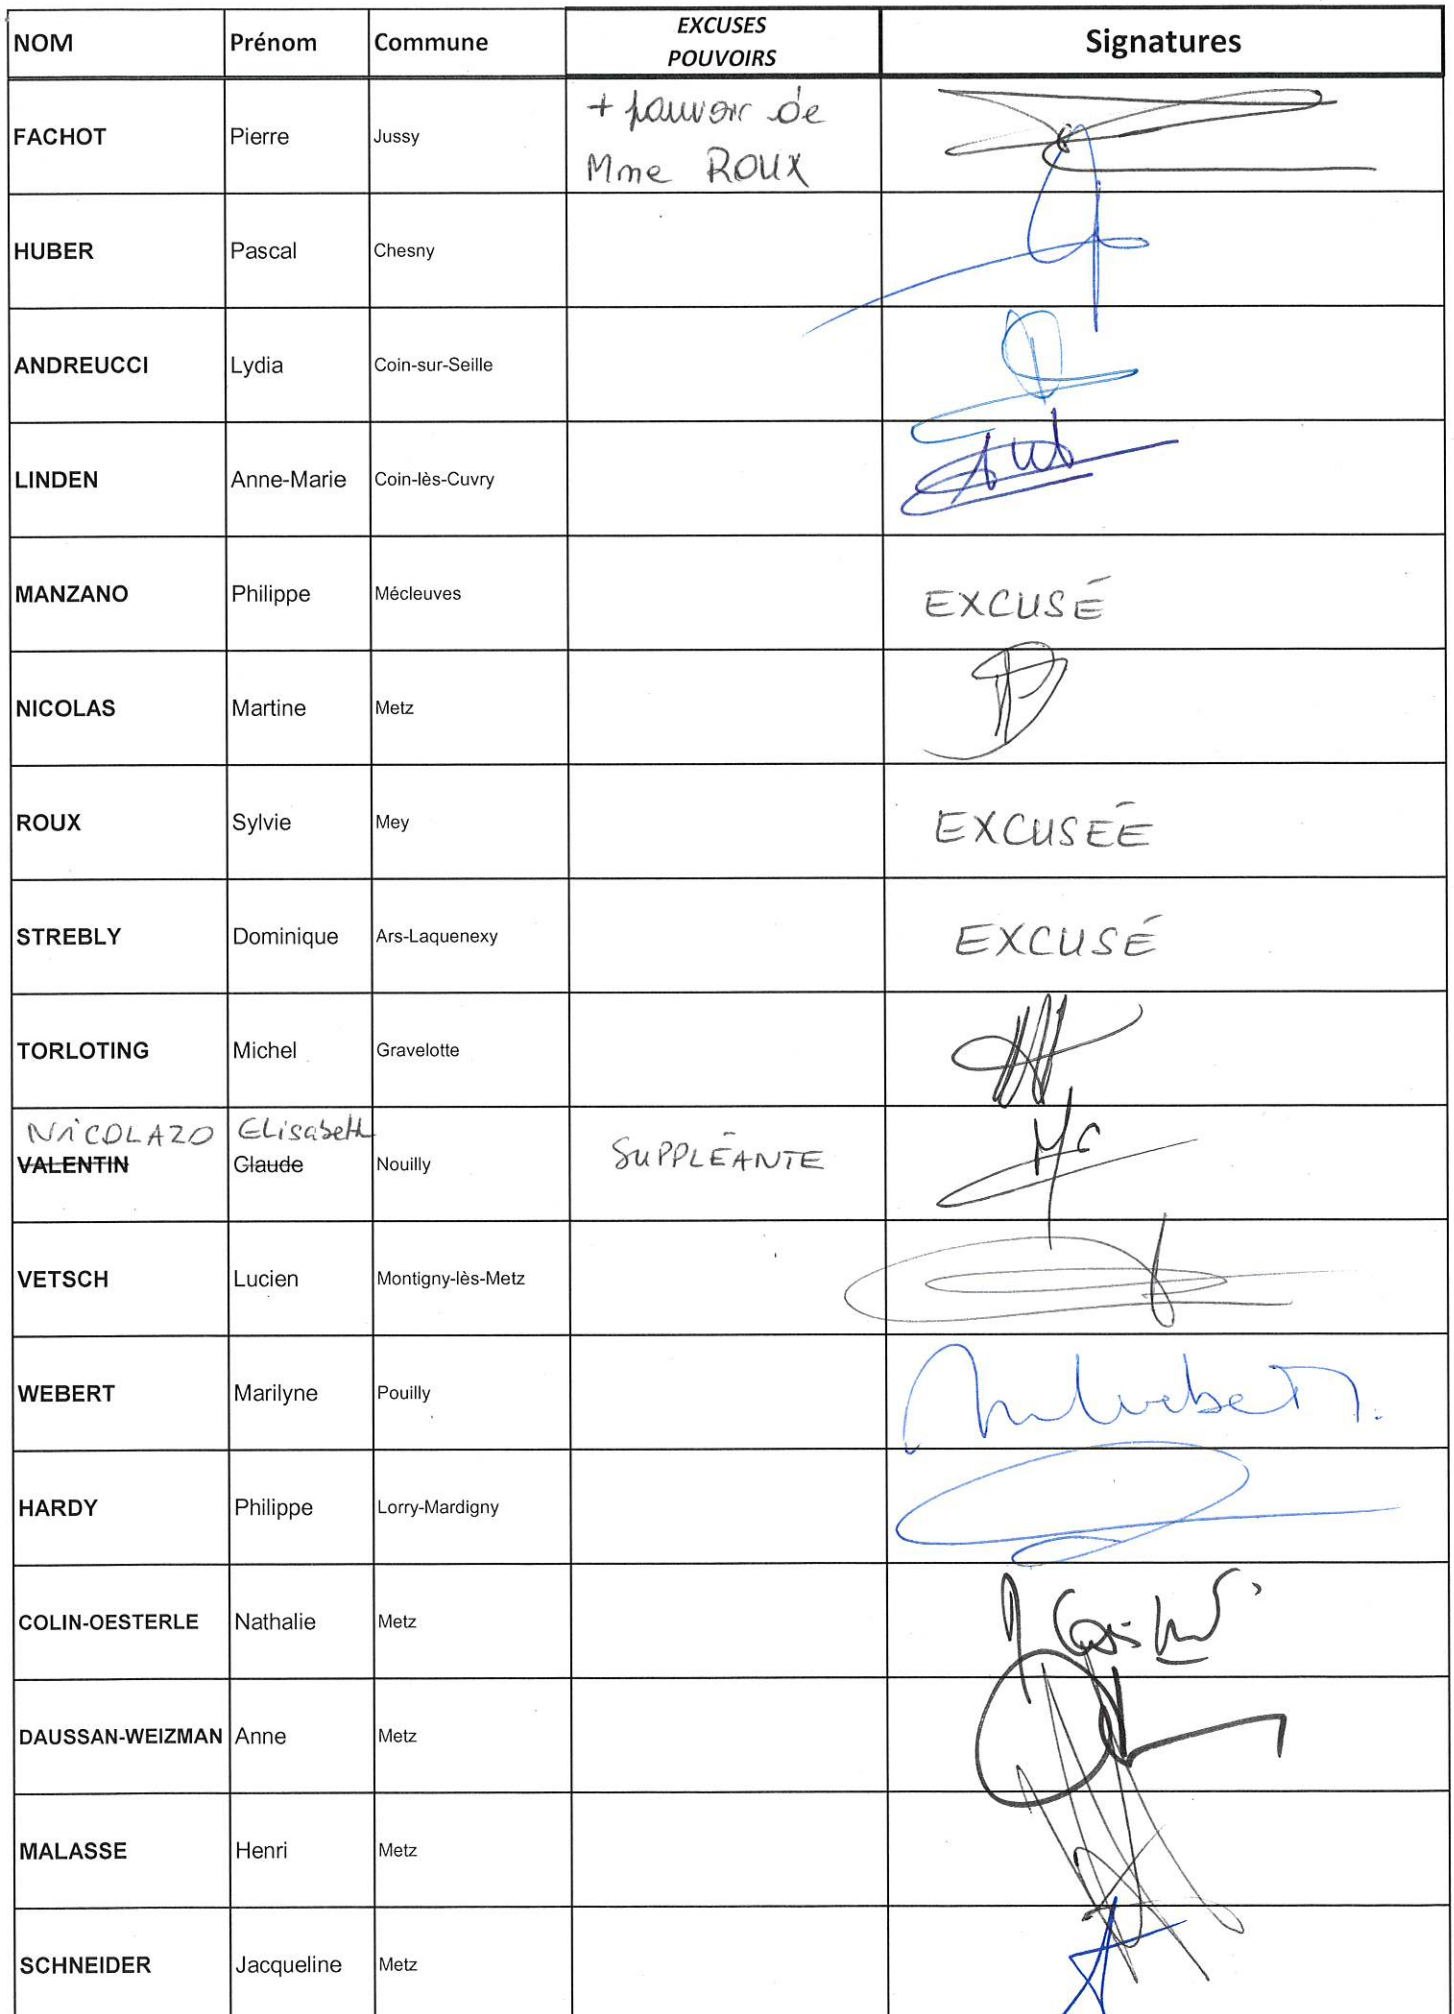 NOM Prénom Commune EXCUSES Signatures
POUVOIRS
FACHOT Pierre Jussy + pouvoir de
Mme ROUX
HUBER Pascal Chesny
ANDREUCCI Lydia Coin-sur-Seille
LINDEN Anne-Marie Coin-lès-Cuvry
MANZANO Philippe Mécleuves EXCUSÉ
NICOLAS Martine Metz
ROUX Sylvie Mey EXCUSÉE
STREBLY Dominique Ars-Laquenexy EXCUSÉ
TORLOTING Michel Gravelotte
NICOLAZO Elisabeth
VALENTIN Claude Nouilly SUPPLÉANTE
VETSCH Lucien Montigny-lès-Metz
WEBERT Marilyne Pouilly
HARDY Philippe Lorry-Mardigny
COLIN-OESTERLE Nathalie Metz
DAUSSAN-WEIZMAN Anne Metz
MALASSE Henri Metz
SCHNEIDER Jacqueline Metz